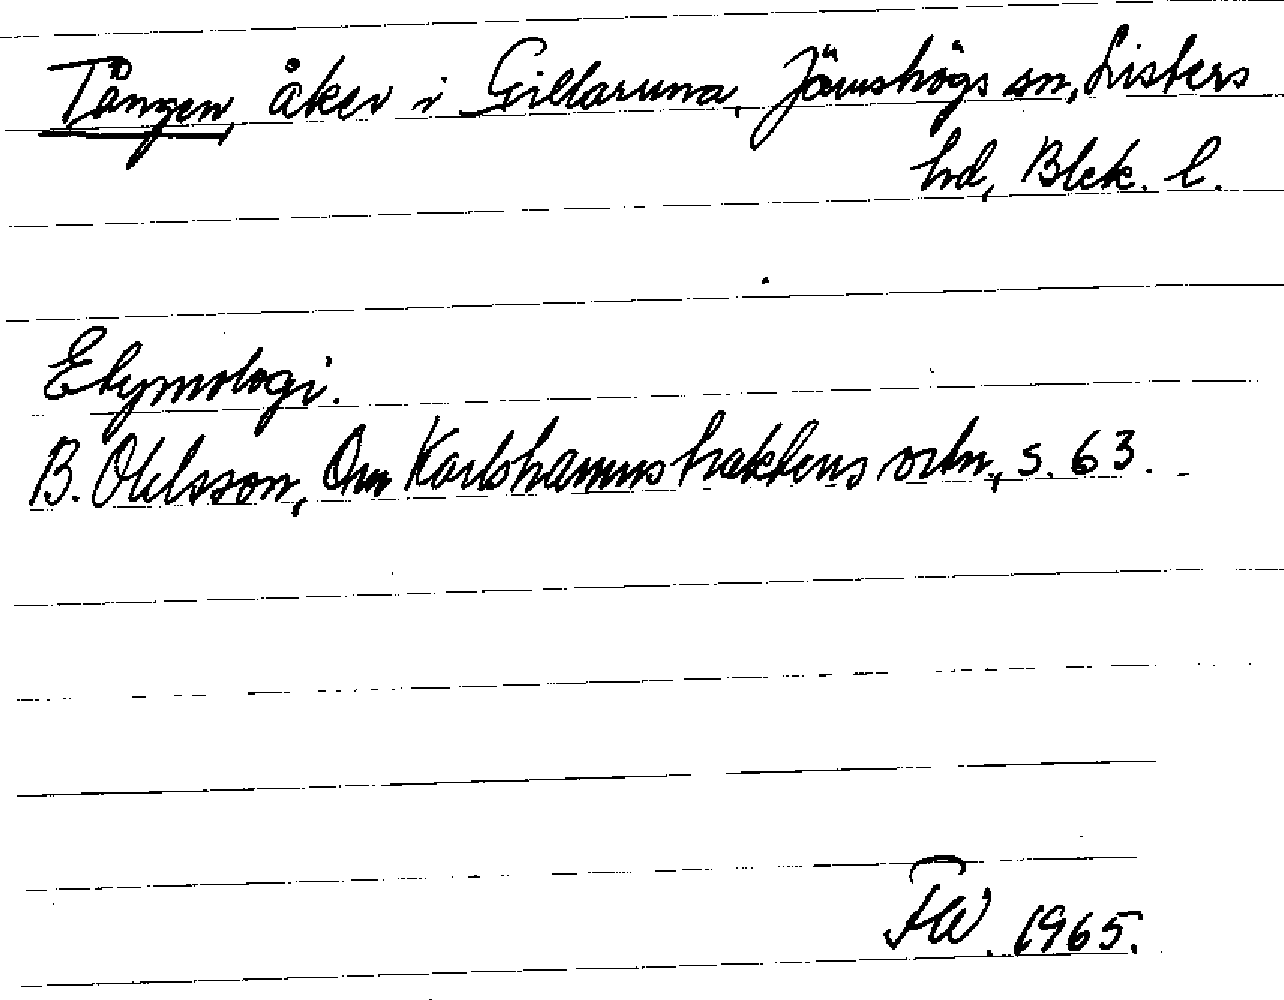 Tången, åker i Gillaruna, Jämshögs sn, Listers
hd, Blek. l.
Etymologi.
B. Ohlsson, Om Karlshamnstraktens ortn., s. 63. -
FW. 1965.